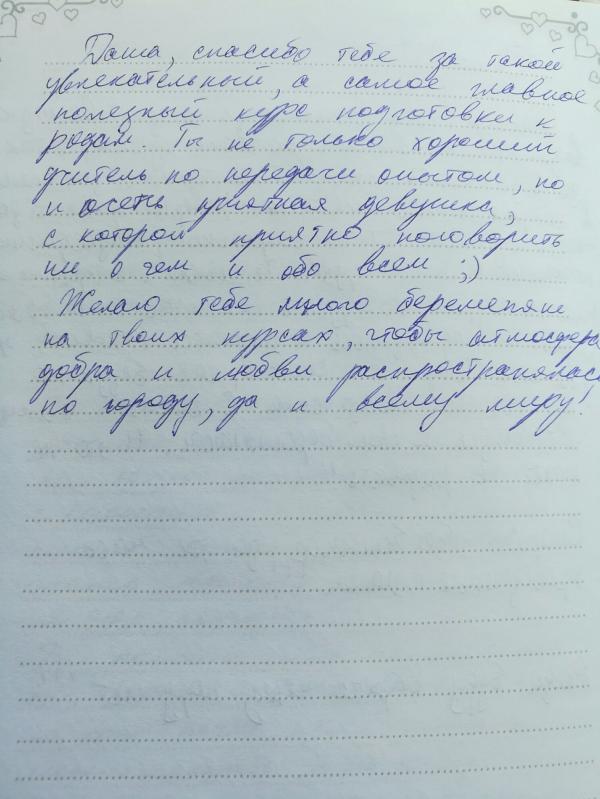 Даша, спасибо тебе за такой
увлекательный, а самое главное
полезный курс подготовки к
родам. Ты не только хороший
учитель по передачи опытом, но
и очень приятная девушка,
с которой приятно поговорить
ни о чем и обо всем ;)
Желаю тебе много беременяш
на твоих курсах, чтобы атмосфера
добра и любви распространялась
по городу, да и всему миру!